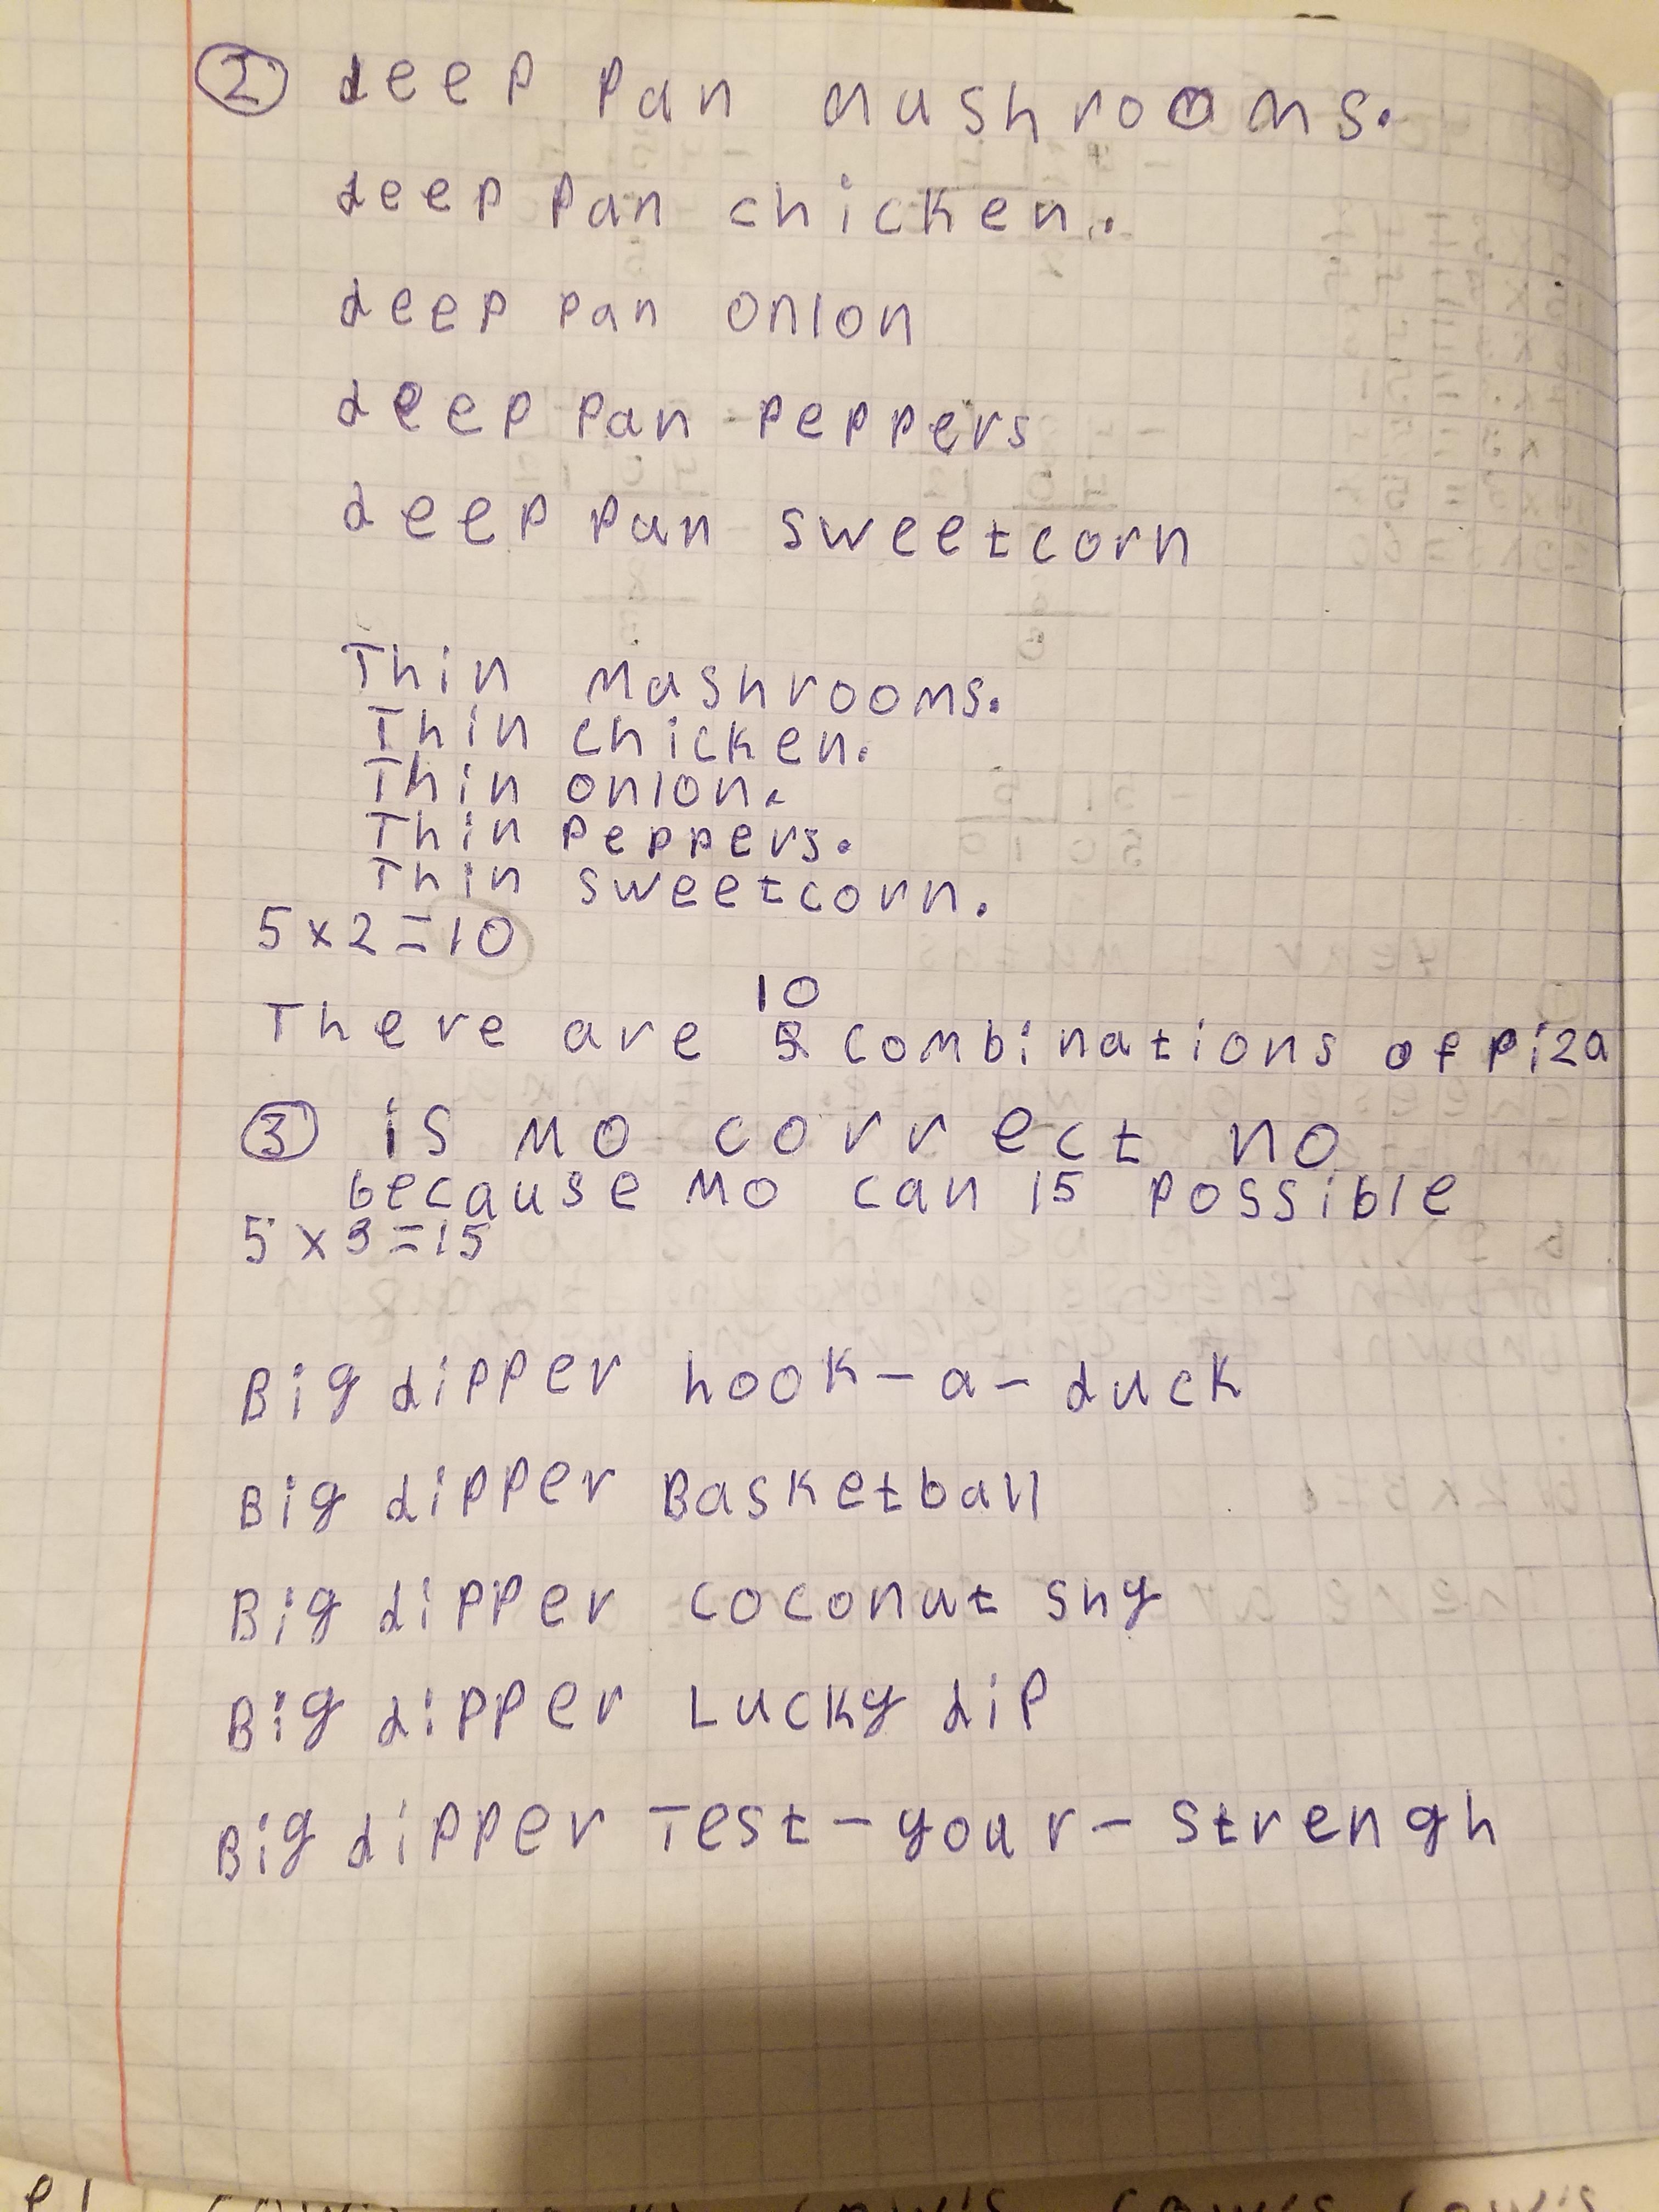 ② deep pan mushrooms.
deep pan chicken.
deep pan onion
deep pan peppers
deep pan sweetcorn
Thin mashrooms.
Thin chicken.
Thin onion.
Thin peppers.
Thin sweetcorn.
5 x 2 = 10
10
There are combinations of piza
③ is Mo correct no
because Mo can 15 possible
5 x 3 = 15
Big dipper hook-a-duck
Big dipper Basketball
Big dipper coconut shy
Big dipper Lucky dip
Big dipper Test-your-strengh